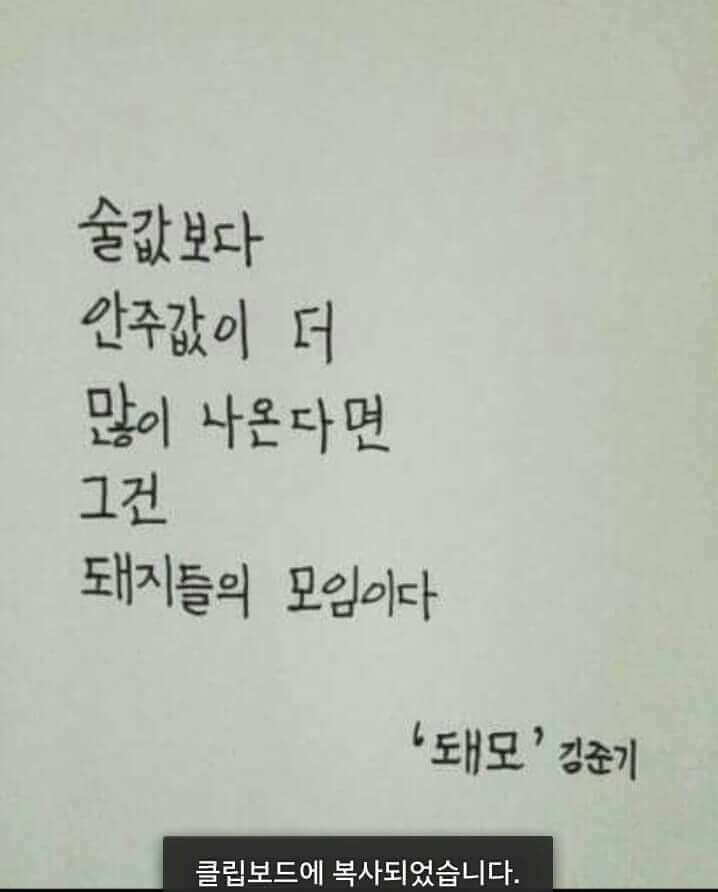 술값보다
안주값이 더
많이 나온다면
그건
돼지들의 모임이다
'돼모' 김준기
클립보드에 복사되었습니다.